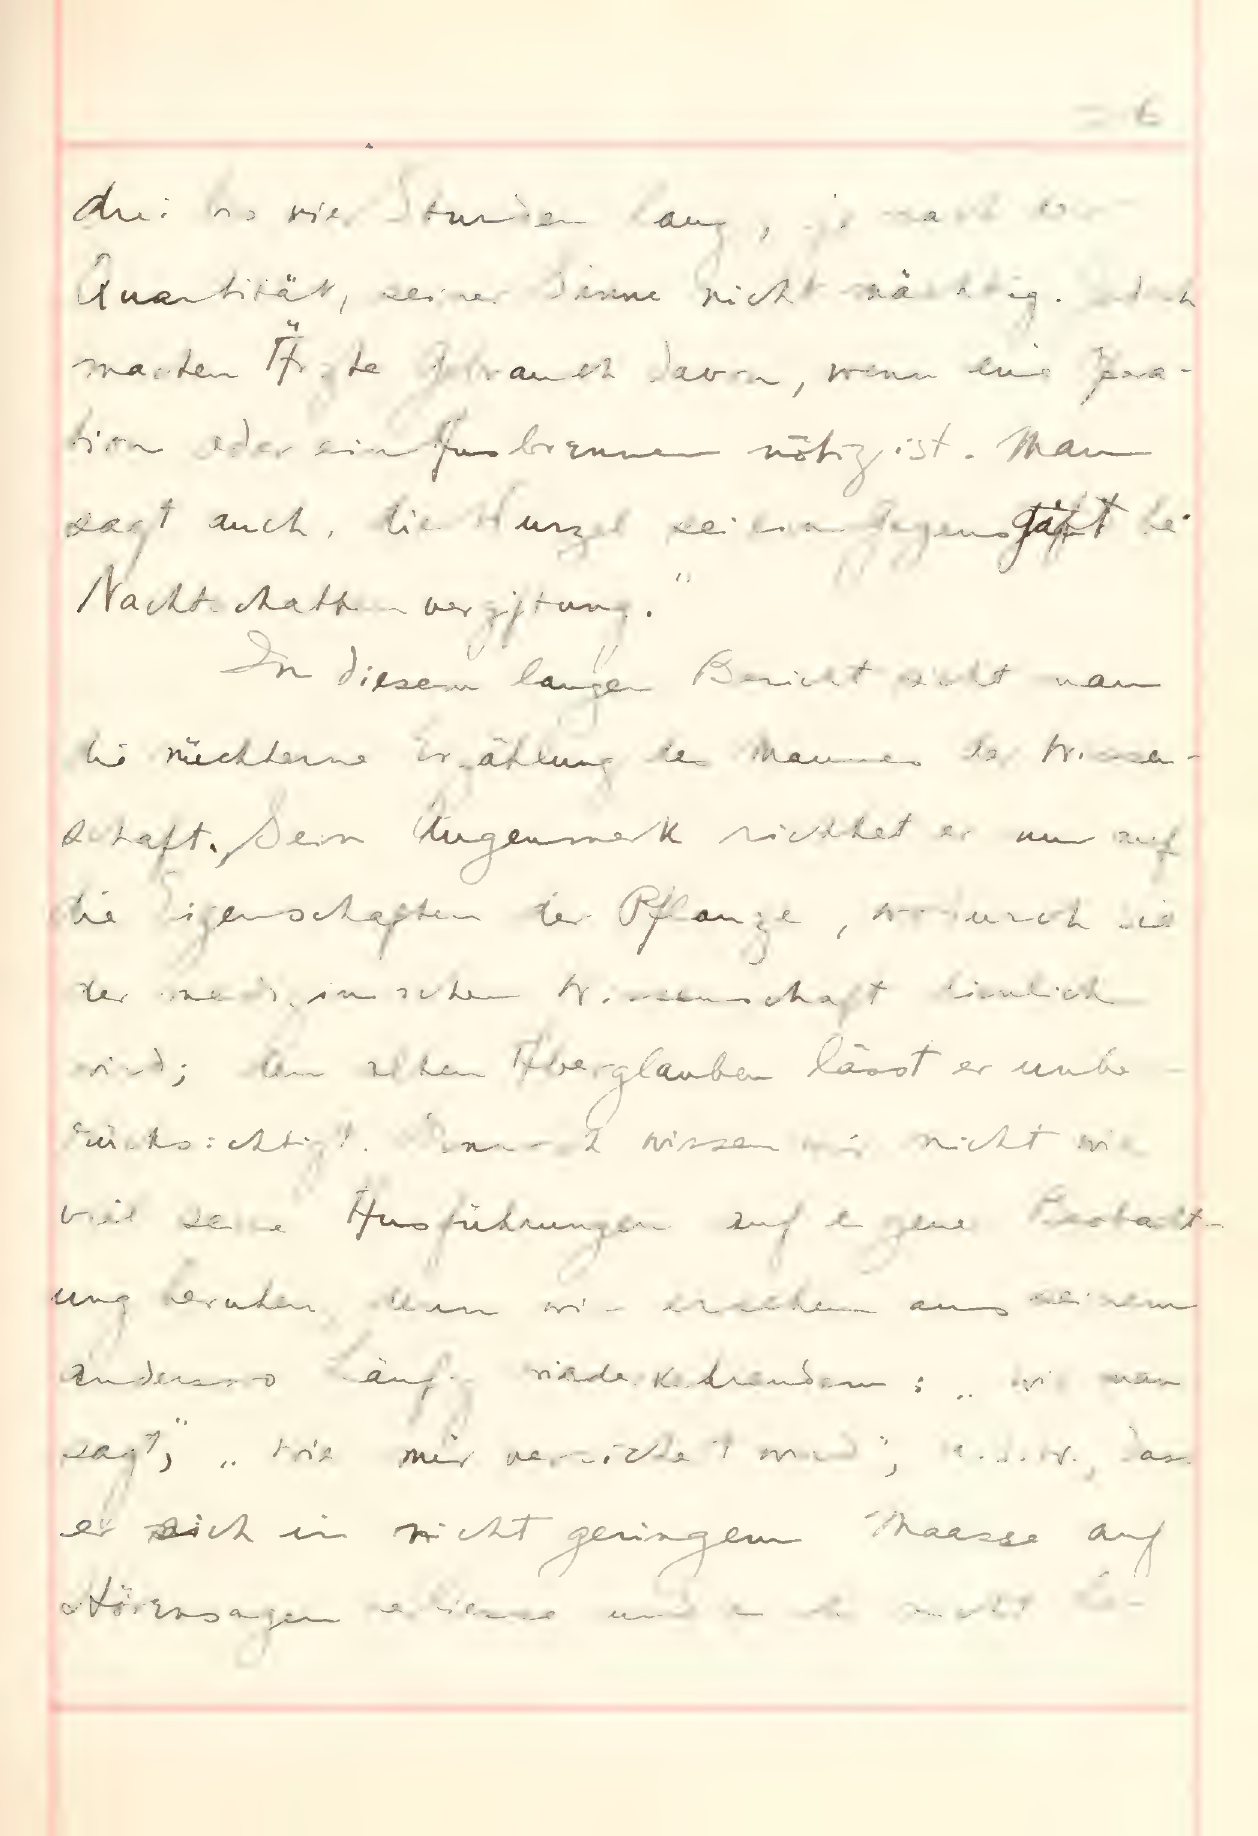 drei bis vier Stunden lang, je nach der
Quantität, seiner Sinne nicht mächtig. Auch
machen Ärzte Gebrauch davon, wenn eine Opera-
tion oder ein Ausbrennen nötig ist. Man
sagt auch, die Wurzel sei ein Gegengift bei
Nachtschattenvergiftung."
In diesem langen Bericht sieht man
die nüchterne Erzählung des Mannes der Wissen-
schaft. Sein Augenmerk richtet er nur auf
die Eigenschaften der Pflanze, wodurch sie
der medizinischen Wissenschaft dienlich
wird; den alten Aberglauben lässt er unbe-
rücksichtigt. Dennoch wissen wir nicht wie
viel seine Ausführungen auf eigene Beobacht-
ung beruhen, denn wir ersehen aus seinem
anderswo häufig wiederkehrendem: „wie man
sagt", „wie mir versichert wird", u.s.w., dass
er sich in nicht geringem Maasse auf
Hörensagen verliesse und nicht be-